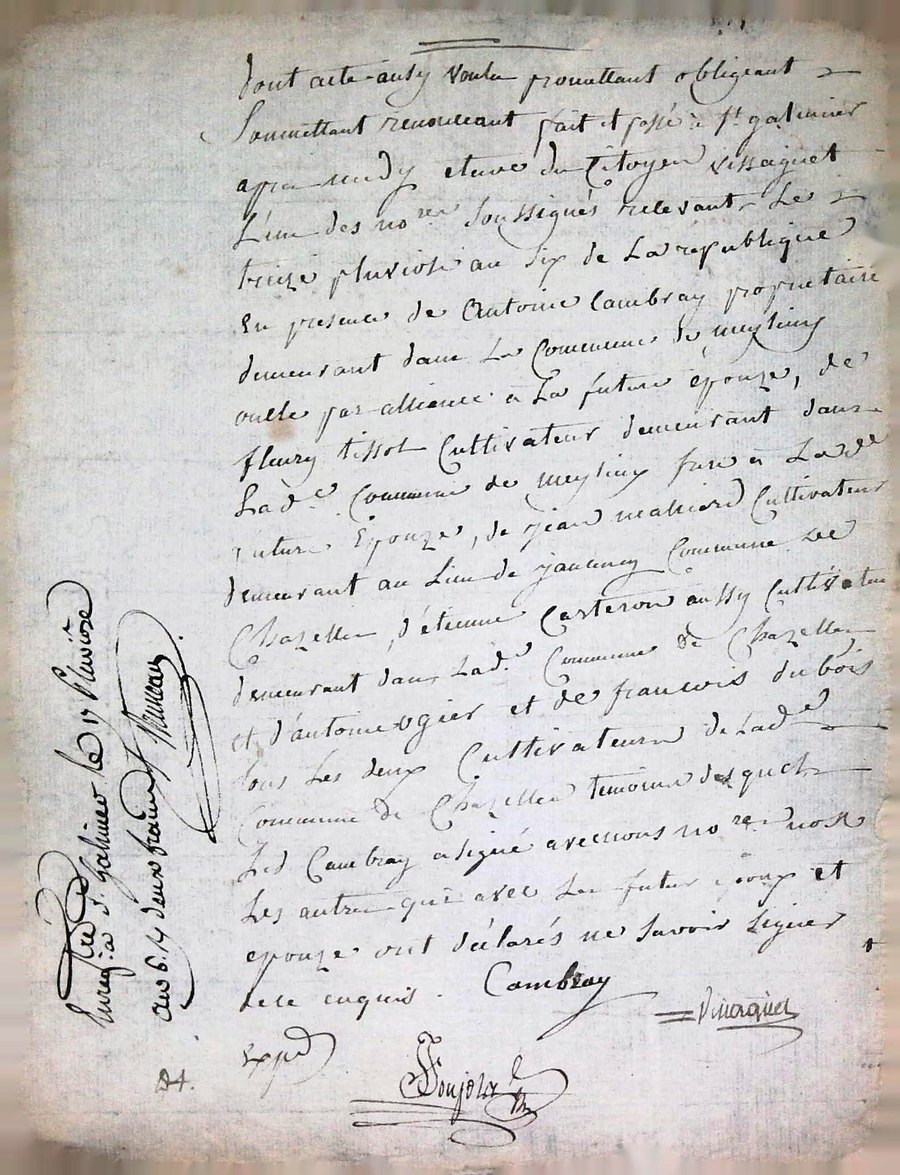 dont acte ainsy voulu promettant obligeant
Soumettant renonceant fait et passé a St galmier
apres midy etude du Citoyen Vissaguet
L'un des nores Soussignés relevant Le
treize pluviose an Six de La republique
En presence de Antoine Cambray proprietaire
demeurant dans La Commune de meylieu
oncle par alliance a La future epouze, de
fleury tissot Cultivateur demeurant dans
Lade Commune de meylieu frere a Lade
future Epouze, de jean Cultivateur
demeurant au Lieu de Commune de
Chazelles, d'étienne Carteron aussy Cultivateur
demeurant dans Lade Commune de Chazelles
et d'antoine ogier et de francois dubois
tous Les deux Cultivateurs de Lade
Commune de Chazelles temoins desquels
Led Cambray a signé avec nous nores non
Les autres qui avec Les futur epoux et
epouze ont déclarés ne Savoir Signer
de ce enquis. Cambray
Expé
Enregré a St Galmier le 17 Pluviose
an 6. deux francs